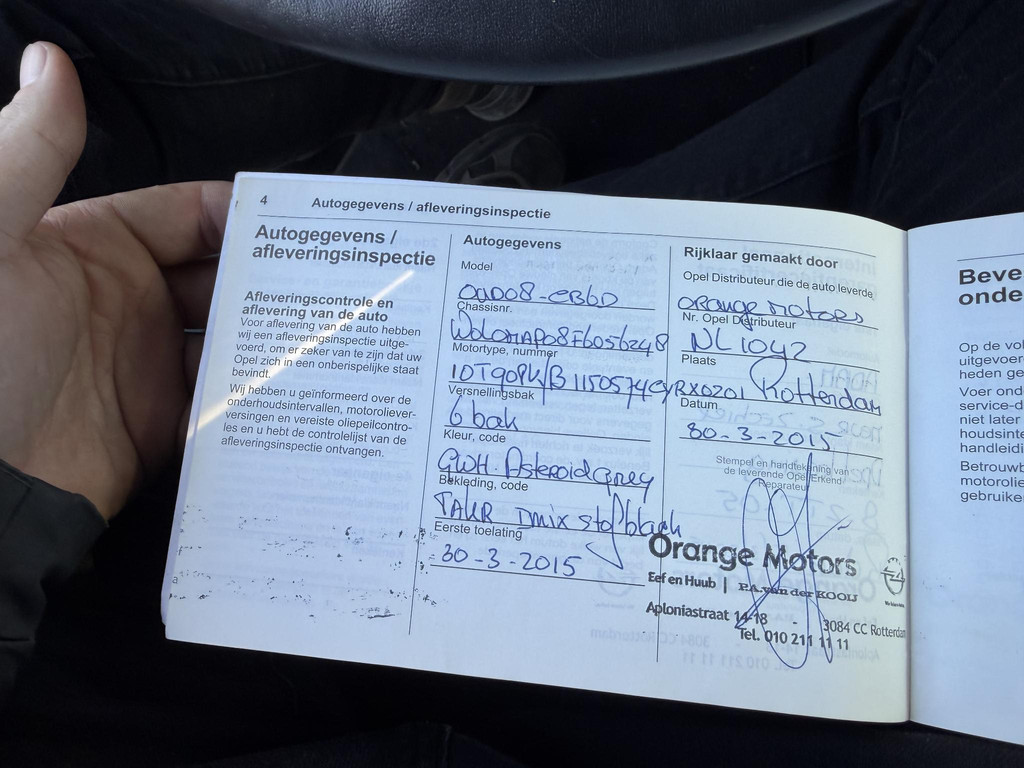 4 Autogegevens / afleveringsinspectie
Autogegevens /
afleveringsinspectie
Afleveringscontrole en
aflevering van de auto
Voor aflevering van de auto hebben
wij een afleveringsinspectie uitge-
voerd, om er zeker van te zijn dat uw
Opel zich in een onberispelijke staat
bevindt.
Wij hebben u geïnformeerd over de
onderhoudsintervallen, motoroliever-
versingen en vereiste oliepeilcontro-
les en u hebt de controlelijst van de
afleveringsinspectie ontvangen.
Autogegevens
Model
0QD08-EB6D
Chassisnr.
W0L0MAP08F6056248
Motortype, nummer
10T90PK/B1150574CYBX0201
Versnellingsbak
6 bak
Kleur, code
GWH. Asteroid Grey
Bekleding, code
TAKR Dmix stof black
Eerste toelating
30-3-2015
Rijklaar gemaakt door
Opel Distributeur die de auto leverde
Orange Motors
Nr. Opel Distributeur
NL 1042
Plaats
Rotterdam
Datum
30-3-2015
Stempel en handtekening van
de leverende Opel Erkend
Reparateur
Orange Motors
Eef en Huub | P.A. van der KOOIJ
Aploniastraat 14-18 - 3084 CC Rotterdam
Tel. 010 211 11 11
Beve
onde
Op de vol
uitgevoer
heden ge
Voor ond
service-d
niet later
houdsinte
handleidi
Betrouwb
motorolie
gebruike